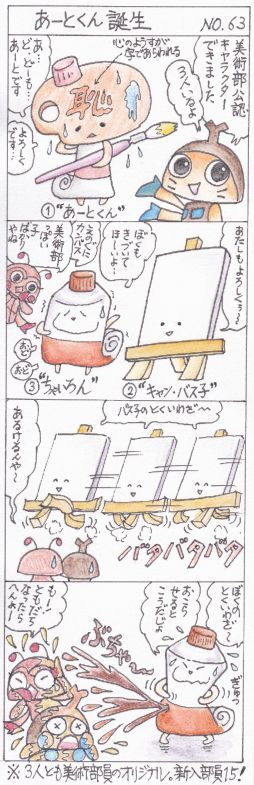 あーとくん誕生 NO.63
美術部公認
キャラクター
できました
3人いるよ
心のようすが
字であらわれる
恥
あ…
ど、どーも…
あーとです…
よろしく
です…
①“あーとくん”
あたしもよろしくぅ〜
②“キャン・バス子”
ぼくも
きづいて
ほしいよ…
えのぐに
カンバス…
美術部
っぽい
子
ばかり
やね
おど
おど
③“ちゃいろん”
バス子のとくいわざ〜
バタバタバタ
あるけるんや〜
ぼくの
とくいわざ〜
おこら
せると
こうだじょ
ぎゅっ
ぶちゃ〜
もー!
ともだち
なったら
へんよー
※3人とも美術部員のオリジナル。新入部員15!